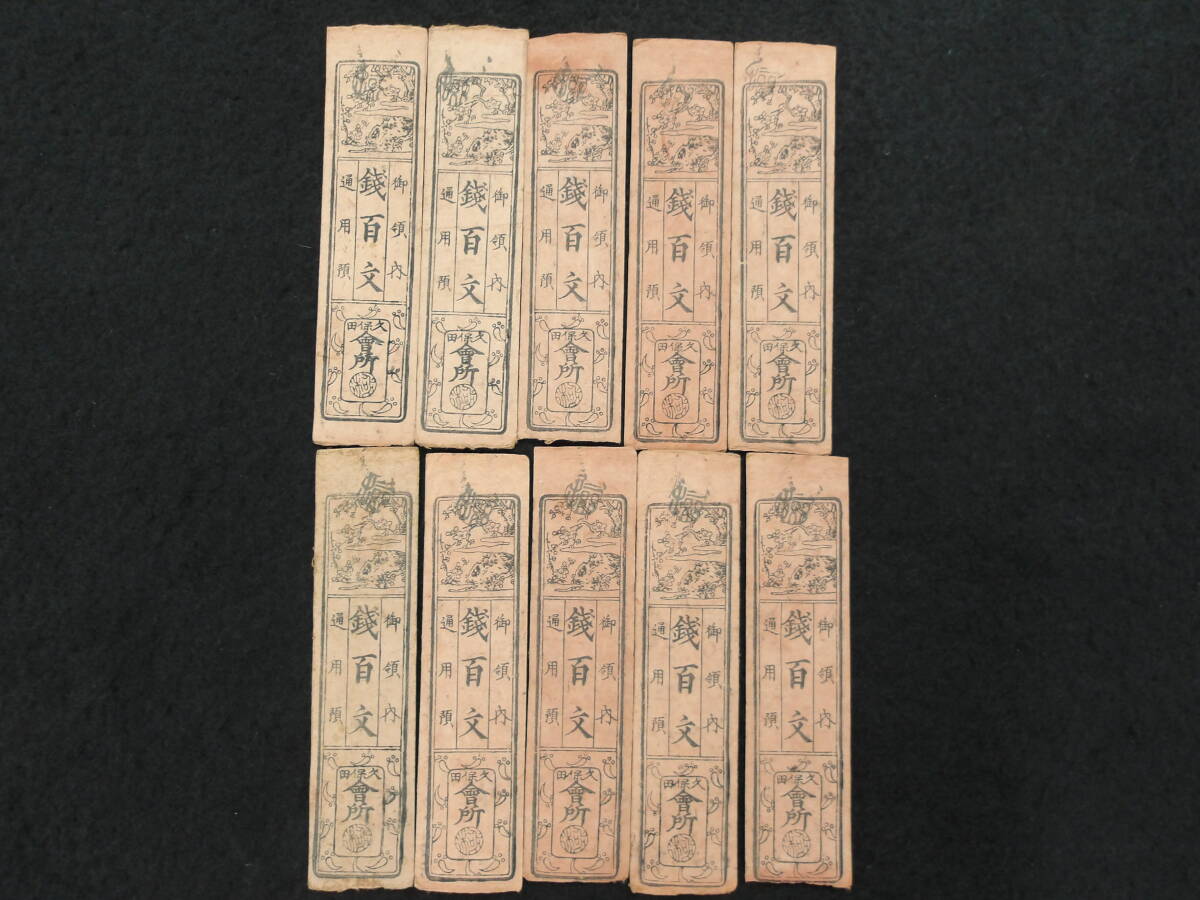 御領内
錢百文
通用預
久保田
會所
御領内
錢百文
通用預
久保田
會所
御領内
錢百文
通用預
久保田
會所
御領内
錢百文
通用預
久保田
會所
御領内
錢百文
通用預
久保田
會所
御領内
錢百文
通用預
久保田
會所
御領内
錢百文
通用預
久保田
會所
御領内
錢百文
通用預
久保田
會所
御領内
錢百文
通用預
久保田
會所
御領内
錢百文
通用預
久保田
會所